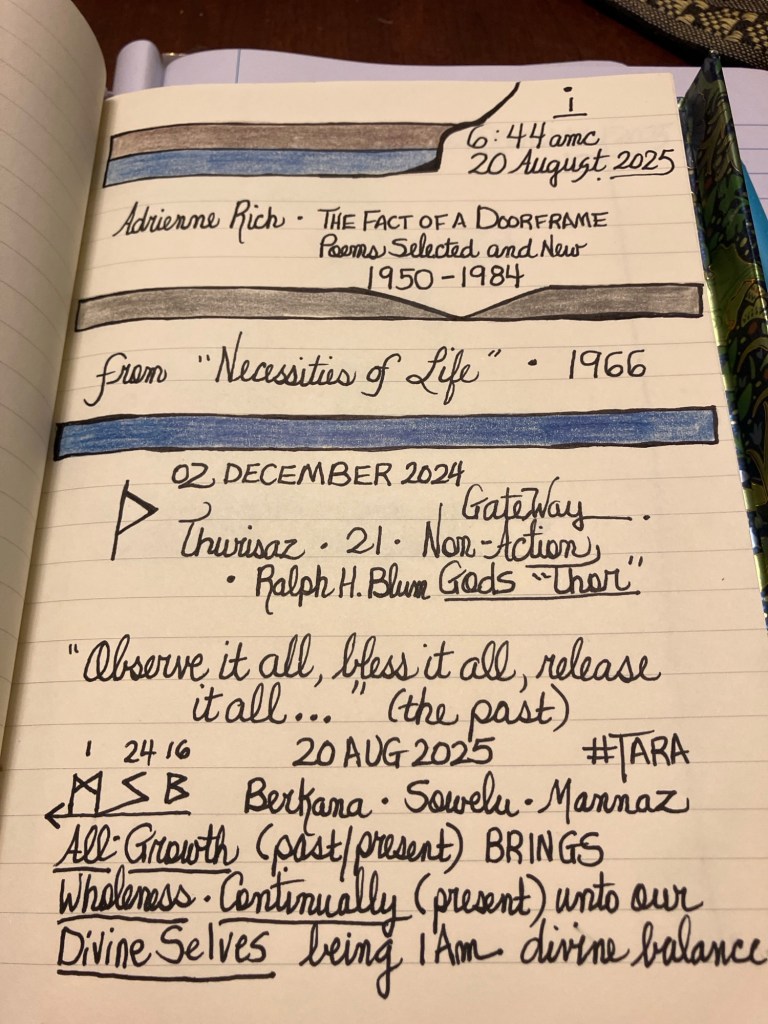 i
6:44 amc
20 August, 2025
Adrienne Rich · THE FACT OF A DOORFRAME
Poems Selected and New
1950-1984
from "Necessities of Life" · 1966
02 DECEMBER 2024
ᚦ GateWay.
Thurisaz · 21 · Non-Action,
· Ralph H. Blum Gods "Thor"
"Observe it all, bless it all, release
it all..." (the past)
1 24 16 20 AUG 2025 #TARA
ᛗ ᛊ ᛒ Berkana · Sowelu · Mannaz
All·Growth (past/present) BRINGS
Wholeness · Continually (present) unto our
Divine Selves being I Am divine balance